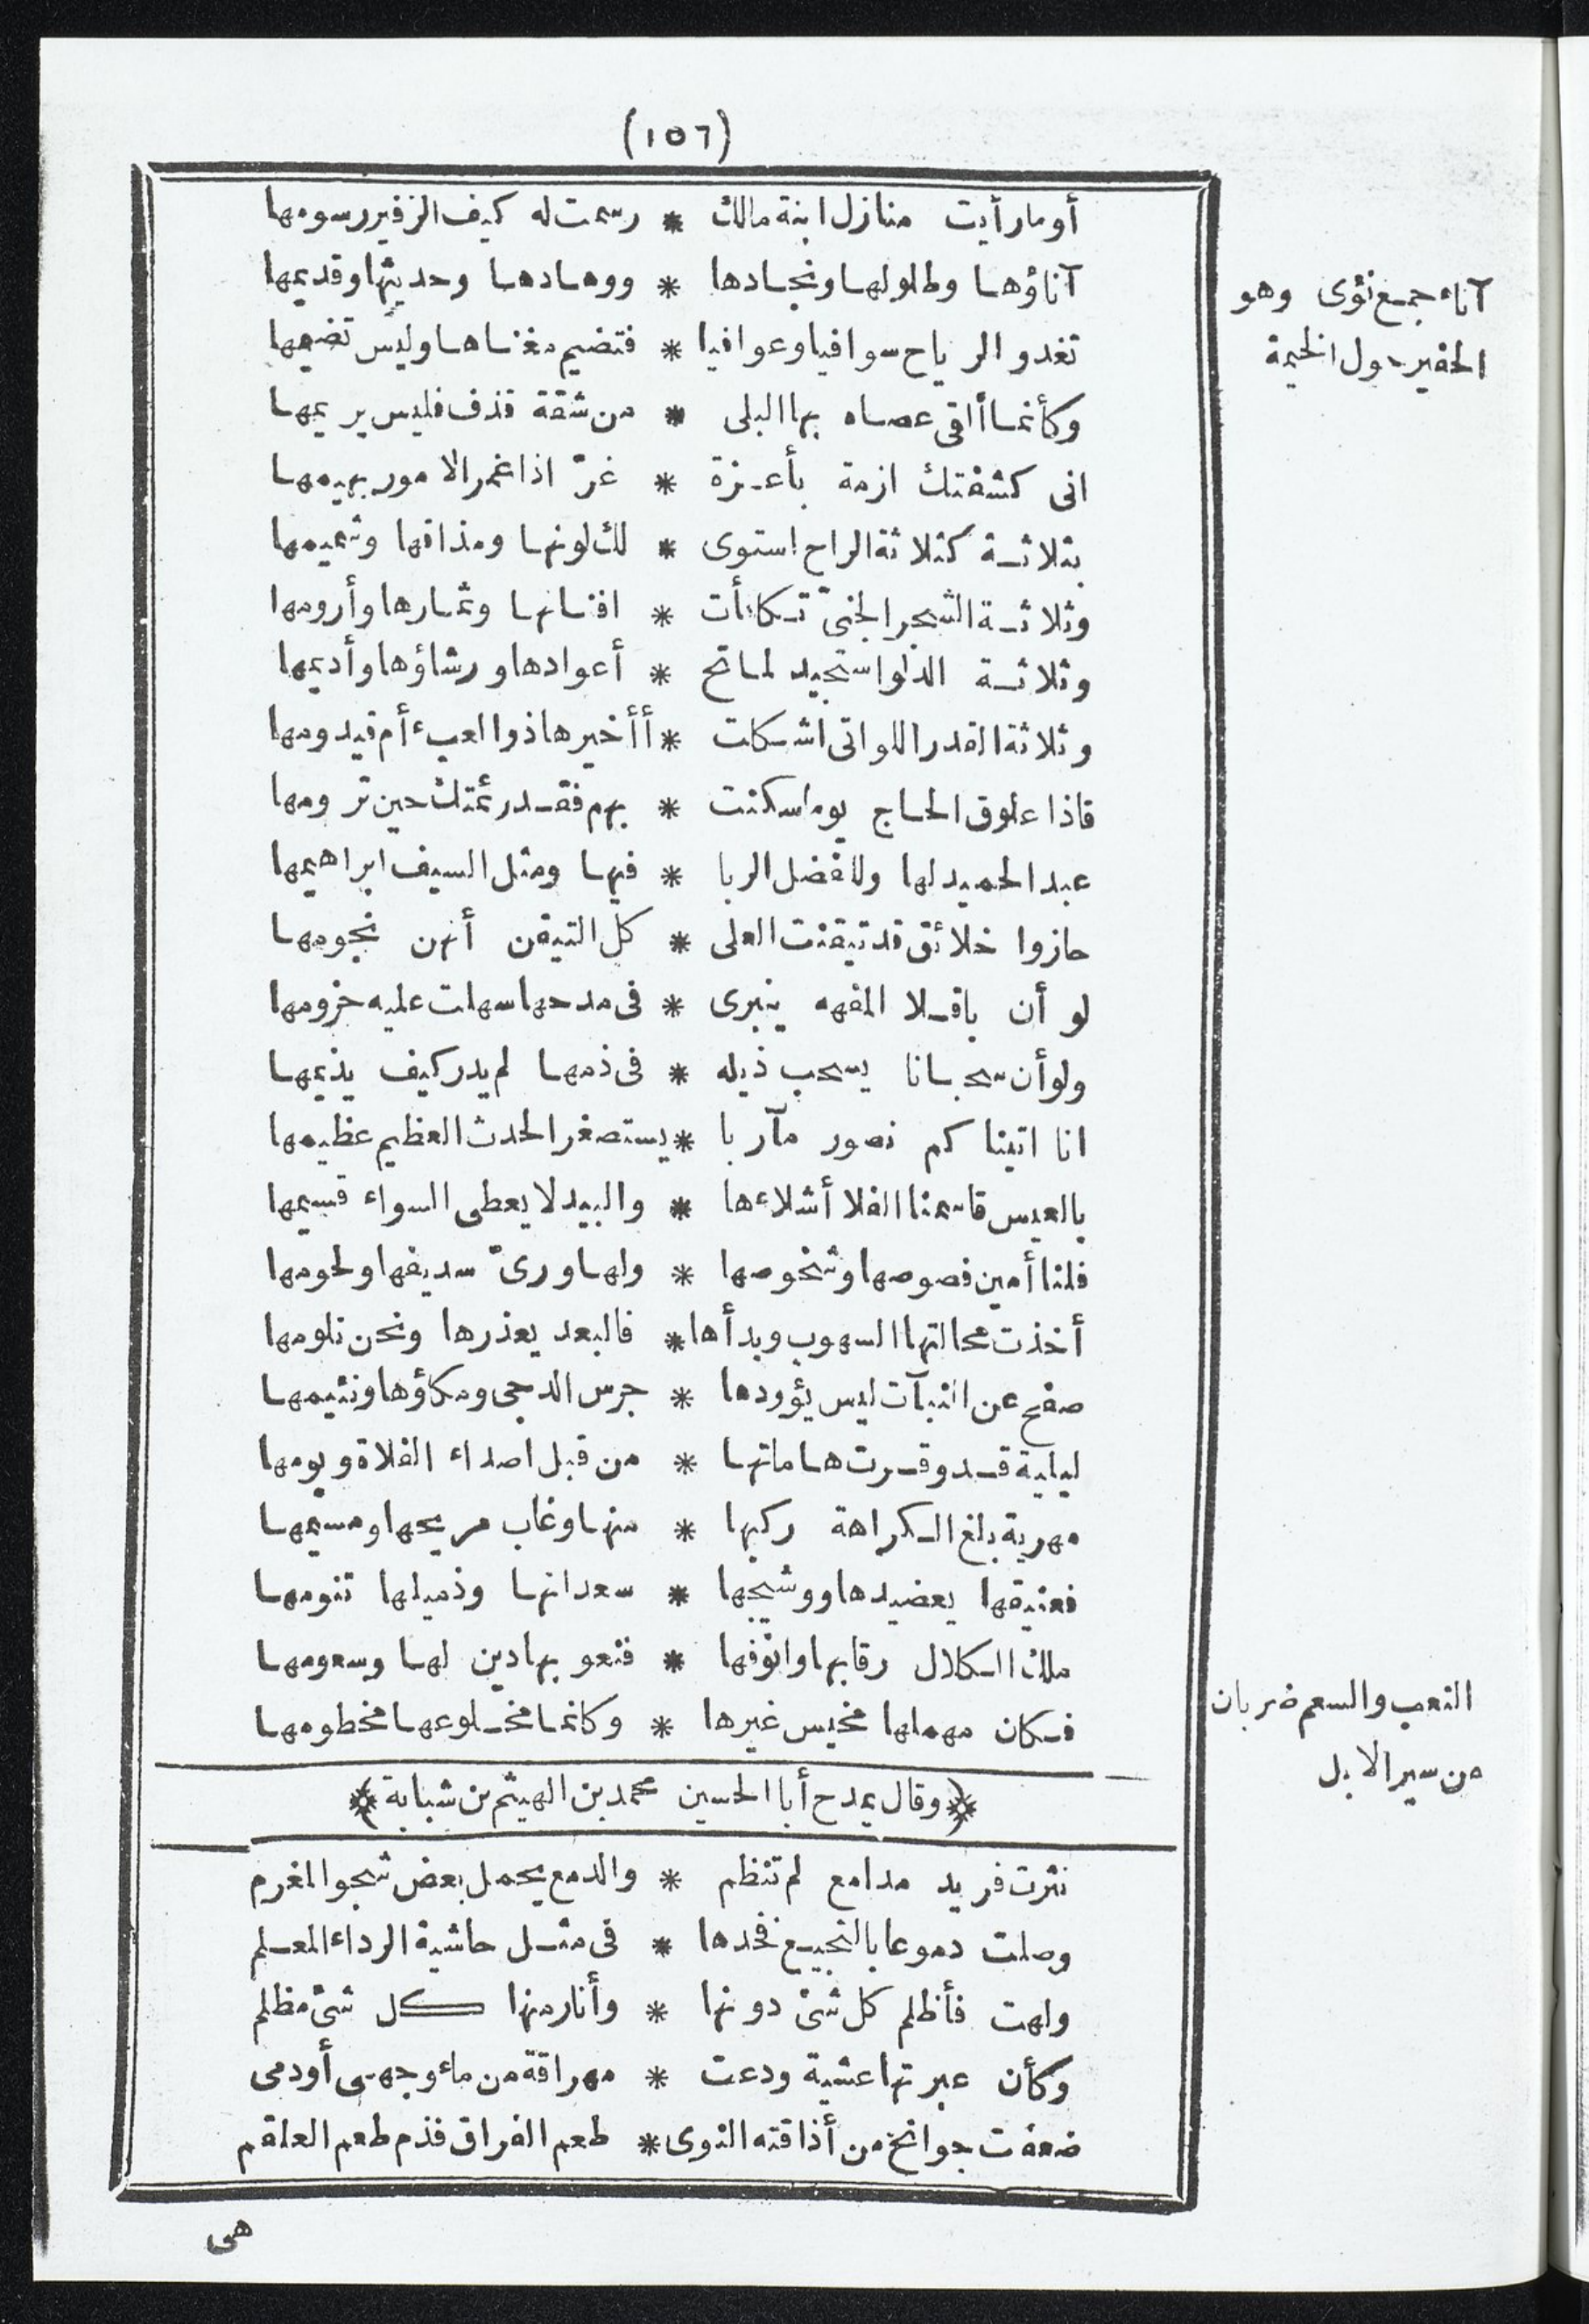 (١٥٦)
أو ما رأيت منازل ابنة مالك * رسمت له كيف الزفير رسومها
آناؤها وطلولها ونجادها * ووهادها وحديثها وقديمها
آناء جمع نؤى وهو
تغدو الرياح سوافيا وعوافيا * فتضيم مغناها وليس تضيمها
الحفير حول الخيمة
وكأنما ألقى عصاه بها البلى * من شقة قذف فليس يريمها
انى كشفتك ازمة بأعزة * غرّ اذا غمر الامور بهيمها
بثلاثة كثلاثة الراح استوى * لك لونها ومذاقها وشميمها
وثلاثة الشجر الجنىّ تكافأت * افنانها وثمارها وأرومها
وثلاثة الدلو استجيد لماتح * أعوادها ورشاؤها وأديمها
وثلاثة القدر اللواتى اشكلت * أأخيرها ذو العبء أم قيدومها
فاذا علوق الحاج يوما سكنت * بهم فقد رئمتك حين ترومها
عبد الحميد لها وللفضل الربا * فيها ومثل السيف ابراهيمها
حازوا خلائق قد تيقنت العلى * كل التيقن أنهن نجومها
لو أن باقلا المفهه ينبرى * فى مدحها سهلت عليه حزومها
ولو أن سحبانا يسحب ذيله * فى ذمها لم يدر كيف يذيمها
انا اتيناكم نصور مآربا * يستصغر الحدث العظيم عظيمها
بالعيس قاسمنا الفلا أشلاءها * والبيد لا يعطى السواء قسيمها
فلنا أمين فصوصها وشخوصها * ولها ورىّ سديفها ولحومها
أخذت محالتها السهوب وبدأها * فالبعد يعذرها ونحن نلومها
صفح عن النبآت ليس يؤودها * جرس الدجى ومكاؤها ونئيمها
ليلية قد وقرت هاماتها * من قبل اصداء الفلاة وبومها
مهرية بلغ الكراهة ركبها * منها وغاب مريحها ومسيمها
فعنيقها يعضيدها ووشيجها * سعدانها وذميلها تنومها
ملك الكلال رقابها وانوفها * فنعو بها دين لها وسعومها
النعب والسعم ضربان
فكان مهملها مخيس غيرها * وكانما مخلوعها مخطومها
من سير الابل
﴿وقال يمدح أبا الحسين محمد بن الهيثم بن شبابة﴾
نثرت فريد مدامع لم تنظم * والدمع يحمل بعض شجو المغرم
وصلت دموعا بالنجيع فخدها * فى مثل حاشية الرداء المعلم
ولهت فأظلم كل شئ دونها * وأنار منها كل شئ مظلم
وكأن عبرتها عشية ودعت * مهراقة من ماء وجهى أو دمى
ضعفت جوانح من أذاقته النوى * طعم الفراق فذم طعم العلقم
هى